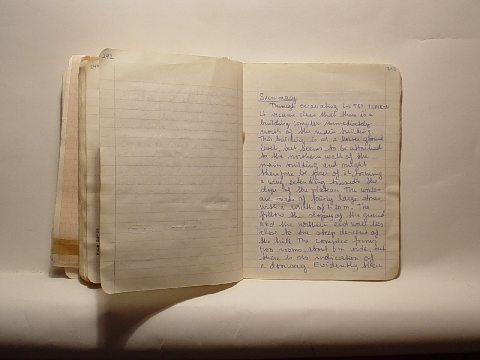 242
243
Summary
Through excavating in T57, T57NEW
it became clear that there is a
building complex immediately
north of the main building.
This building is at a lower ground
level, but seems to be attached
to the northern wall of the
main building and might
therefore be part of it, forming
a wing extending towards the
slope of the plateau. The walls
are made of fairly large stones
with a width of 1.20m. The
follow the sloping of the ground
and the northern end wall lies
close to the steep decline of
the hill. The complex forms
two rooms, about 6m wide, but
there is no indication of
a doorway. Evidently there